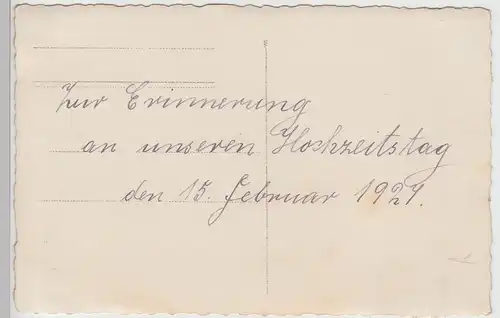 Zur Erinnerung
an unseren Hochzeitstag
den 15. Februar 1927.